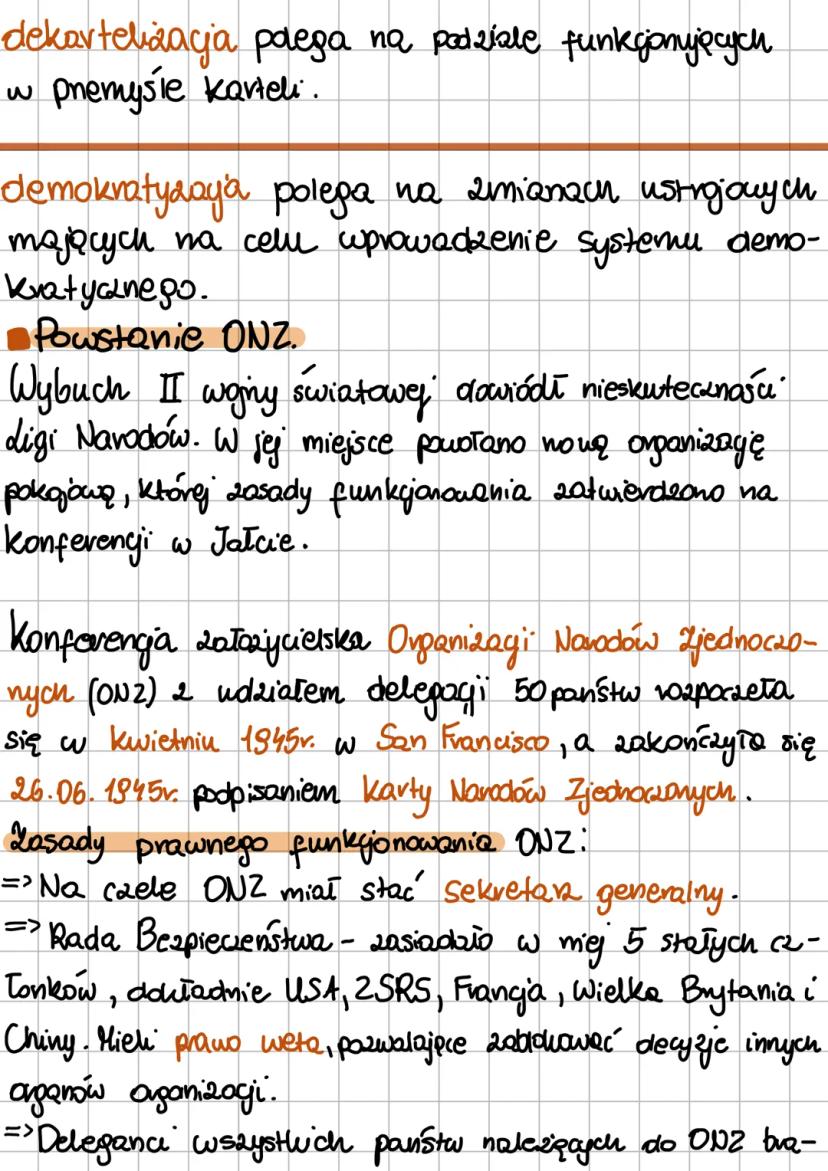 dekartelizacja polega na podziale funkcjonujących
w przemyśle karteli.
demokratyzacja polega na zmianach ustrojowych
mających na celu wprowadzenie systemu demo-
kratycznego.
Powstanie ONZ.
Wybuch II wojny światowej dowiódł nieskuteczności
Ligi Narodów. W jej miejsce powołano nową organizację
pokojową, której zasady funkcjonowania zatwierdzono na
konferencji w Jałcie.
Konferencja założycielska Organizacji Narodów Zjednoczo-
nych (ONZ) z udziałem delegacji 50 państw rozpoczęła
się w kwietniu 1945r. w San Francisco, a zakończyła się
26.06.1945r. podpisaniem Karty Narodów Zjednoczonych.
Zasady prawnego funkcjonowania ONZ:
=> Na czele ONZ miał stać sekretarz generalny.
=> Rada Bezpieczeństwa - zasiadało w niej 5 stałych cz-
łonków, dokładnie USA, ZSRS, Francja, Wielka Brytania i
Chiny. Mieli prawo weta, pozwalające zablokować decyzje innych
organów organizacji.
=> Deleganci wszystkich państw należących do ONZ bra-